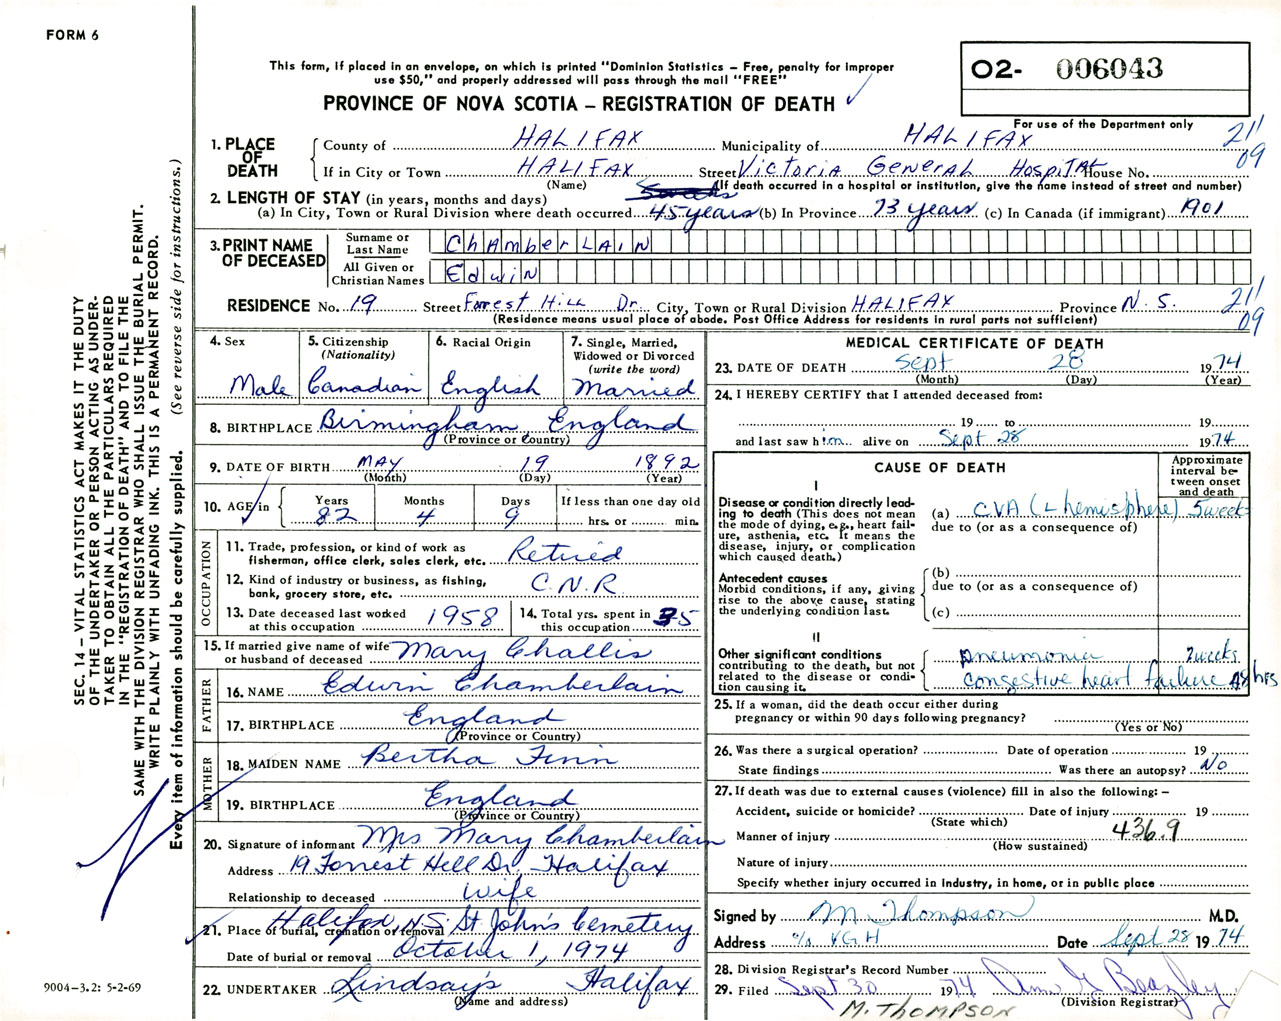 FORM 6
This form, if placed in an envelope, on which is printed "Dominion Statistics – Free, penalty for improper
use $50," and properly addressed will pass through the mail "FREE"
PROVINCE OF NOVA SCOTIA – REGISTRATION OF DEATH
02- 006043
For use of the Department only
211
09
1. PLACE OF DEATH
County of HALIFAX Municipality of HALIFAX
If in City or Town HALIFAX Street Victoria General Hospital House No.
(Name) (If death occurred in a hospital or institution, give the name instead of street and number)
2. LENGTH OF STAY (in years, months and days)
(a) In City, Town or Rural Division where death occurred 45 years (b) In Province 73 years (c) In Canada (if immigrant) 1901
3. PRINT NAME OF DECEASED
Surname or Last Name ChAmberLAIN
All Given or Christian Names EdwiN
RESIDENCE No. 19 Street Forrest Hill Dr. City, Town or Rural Division HALIFAX Province N.S.
(Residence means usual place of abode. Post Office Address for residents in rural parts not sufficient)
211
09
4. Sex Male
5. Citizenship (Nationality) Canadian
6. Racial Origin English
7. Single, Married, Widowed or Divorced (write the word) Married
8. BIRTHPLACE Birmingham, England
(Province or Country)
9. DATE OF BIRTH MAY 19 1892
(Month) (Day) (Year)
10. AGE in Years 82 Months 4 Days 9 If less than one day old
hrs. or min.
OCCUPATION
11. Trade, profession, or kind of work as fisherman, office clerk, sales clerk, etc. Retired
12. Kind of industry or business, as fishing, bank, grocery store, etc. C.N.R.
13. Date deceased last worked at this occupation 1958
14. Total yrs. spent in this occupation 35
15. If married give name of wife or husband of deceased Mary Challis
FATHER
16. NAME Edwin Chamberlain
17. BIRTHPLACE England
(Province or Country)
MOTHER
18. MAIDEN NAME Bertha Finn
19. BIRTHPLACE England
(Province or Country)
20. Signature of informant Mrs Mary Chamberlain
Address 19 Forrest Hell Dr. Halifax
Relationship to deceased wife
21. Place of burial, cremation or removal Halifax, N.S. St John's Cemetery
Date of burial or removal October 1, 1974
22. UNDERTAKER Lindsay's Halifax
(Name and address)
MEDICAL CERTIFICATE OF DEATH
23. DATE OF DEATH Sept 28 1974
(Month) (Day) (Year)
24. I HEREBY CERTIFY that I attended deceased from:
19 to 19
and last saw him alive on Sept 28 1974
CAUSE OF DEATH
Approximate interval between onset and death
I
Disease or condition directly leading to death (This does not mean the mode of dying, e.g., heart failure, asthenia, etc. It means the disease, injury, or complication which caused death.)
(a) CVA (L hemisphere) 5 weeks
due to (or as a consequence of)
Antecedent causes
Morbid conditions, if any, giving rise to the above cause, stating the underlying condition last.
(b)
due to (or as a consequence of)
(c)
II
Other significant conditions contributing to the death, but not related to the disease or condition causing it.
pneumonia 2 weeks
congestive heart failure 48 hrs
25. If a woman, did the death occur either during pregnancy or within 90 days following pregnancy?
(Yes or No)
26. Was there a surgical operation? Date of operation 19
State findings Was there an autopsy? No
27. If death was due to external causes (violence) fill in also the following: –
Accident, suicide or homicide? Date of injury 19
(State which)
Manner of injury 436.9
(How sustained)
Nature of injury
Specify whether injury occurred in industry, in home, or in public place
Signed by M Thompson M.D.
Address c/o VGH Date Sept 28 1974
28. Division Registrar's Record Number
29. Filed Sept 30 1974
(Division Registrar)
M. THOMPSON
SEC. 14 – VITAL STATISTICS ACT MAKES IT THE DUTY
OF THE UNDERTAKER OR PERSON ACTING AS UNDER-
TAKER TO OBTAIN ALL THE PARTICULARS REQUIRED
IN THE "REGISTRATION OF DEATH" AND TO FILE THE
SAME WITH THE DIVISION REGISTRAR WHO SHALL ISSUE THE BURIAL PERMIT.
WRITE PLAINLY WITH UNFADING INK. THIS IS A PERMANENT RECORD.
Every item of information should be carefully supplied. (See reverse side for instructions.)
9004-3.2: 5-2-69